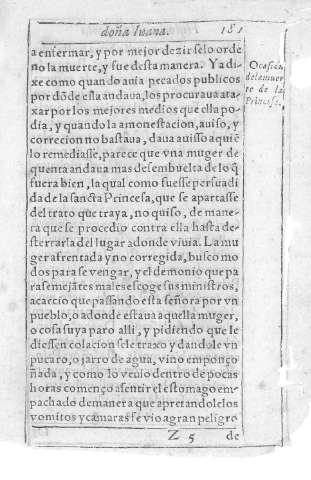 doña Iuana. 181
a enfermar, y por mejor dezir selo orde
no la muerte, y fue desta manera. Ya di-
xe como quando auia pecados publicos
por dõde ella andaua, los procuraua ata-
xar por los mejores medios que ella po-
dia, y quando la amonestacion, auiso, y
correcion no bastaua, daua auisso a quiẽ
lo remediasse, parece que vna muger de
quenta andaua mas desembuelta de lo q̃
fuera bien, la qual como fuesse persuadi
da de la sancta Princesa, que se apartasse
del trato que traya, no quiso, de mane-
ra que se procedio contra ella hasta de-
sterrarla del lugar adonde viuia. La mu
ger afrentada y no corregida, busco mo
dos para se vengar, y el demonio que pa
ra semejãtes males escoge sus ministros,
acaecio que passando esta señora por vn
pueblo, o adonde estaua aquella muger,
o cosa suya paro alli, y pidiendo que le
diessen colacion sele traxo y dandole vn
pucaro, o jarro de agua, vino emponço
ñada, y como lo veuio dentro de pocas
horas començo a sentir el estomago em-
pachado de manera que apretandole los
vomitos y camaras se vio a gran peligro
Z 5 de
Ocasiõn
dela muer
te de la
Princesa.